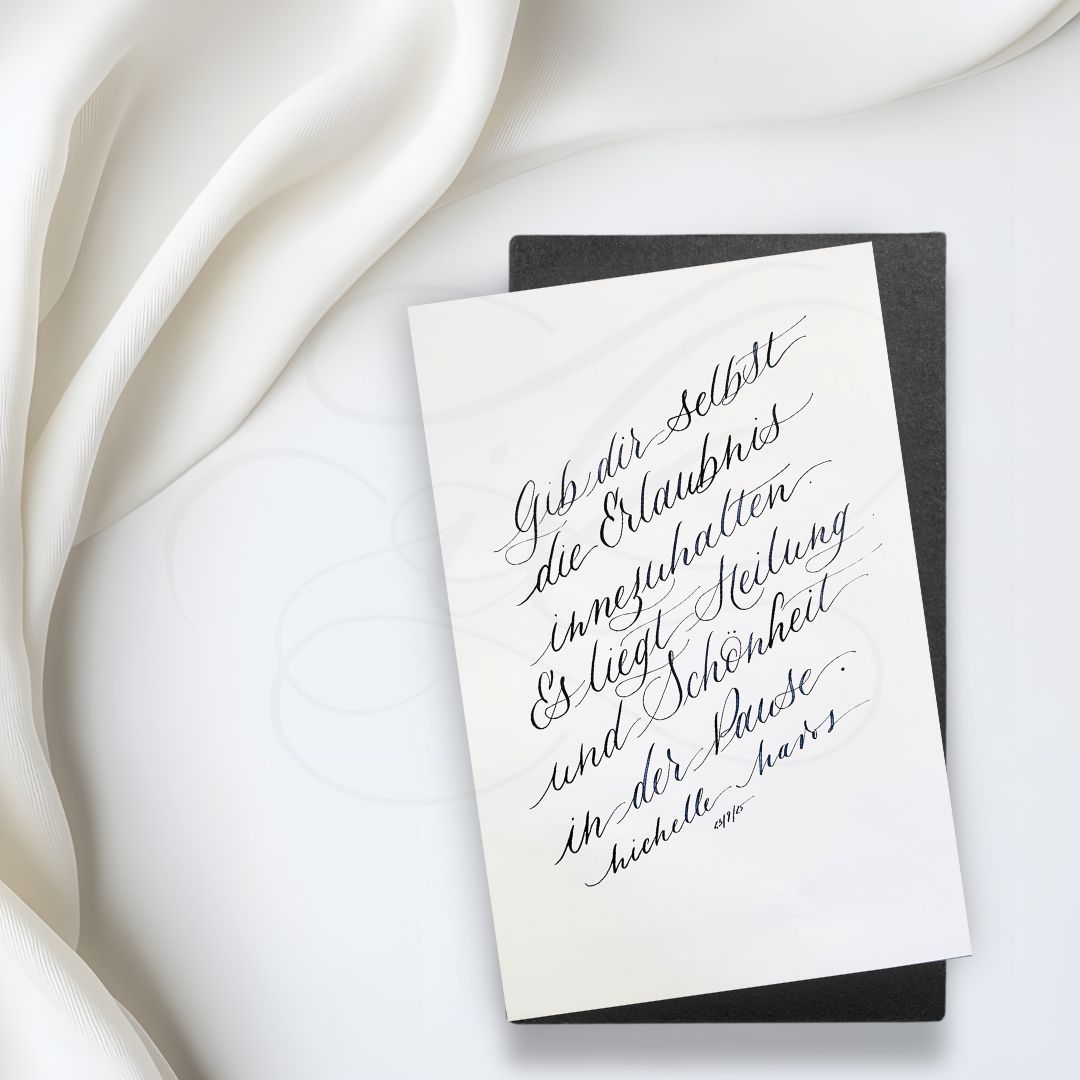 Gib dir selbst
die Erlaubnis
innezuhalten.
Es liegt Heilung
und Schönheit
in der Pause.
michelle maros